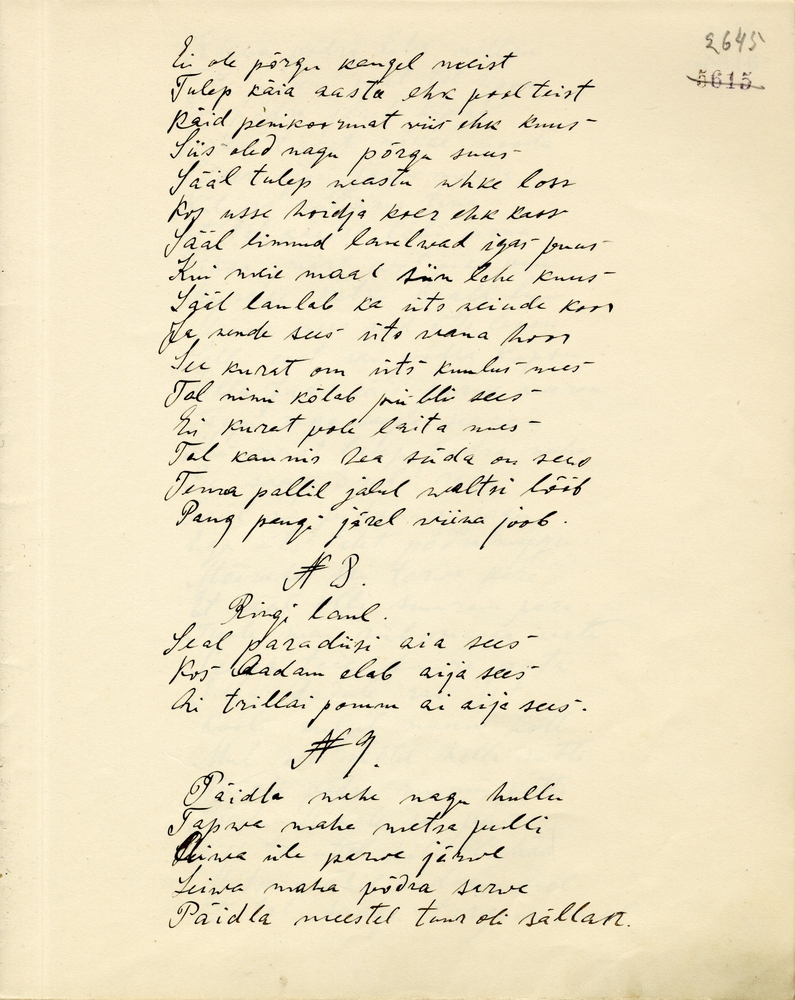 2645
5615
Ei ole põrgu kaugel meist
Tulep käia aasta ehk poolteist
Käid penikoormat viis ehk kuus
Siis oled nagu põrgu suus
Sääl tulep vastu uhke loss
Kos usse hoidja koer ehk kass
Sääl linnud laulwad igas puus
Kui meie maal siin lehe kuus
Sääl laulab ka üts neiude koor
Ja nende sees üts vana hoor
See kurat om üts kuulus mees
Tal nimi kõlab piibli sees
Ei kurat pole laita mees
Tal kaunis hea süda on sees
Tema pallil jalul waltsi lööb
Pang pangi järel viina joob.
N 8.
Ringi laul.
Seal paradiisi aia sees
Kos Aadam elab aija sees
Ai trillai pomm ai aija sees.
N 9.
Päidla mehe nagu hullu
Tapwa maha metsa pulli
Aiwa üle parve järve
Leiwa maha põdra sarve
Päidla meestel tuur oli sällan.